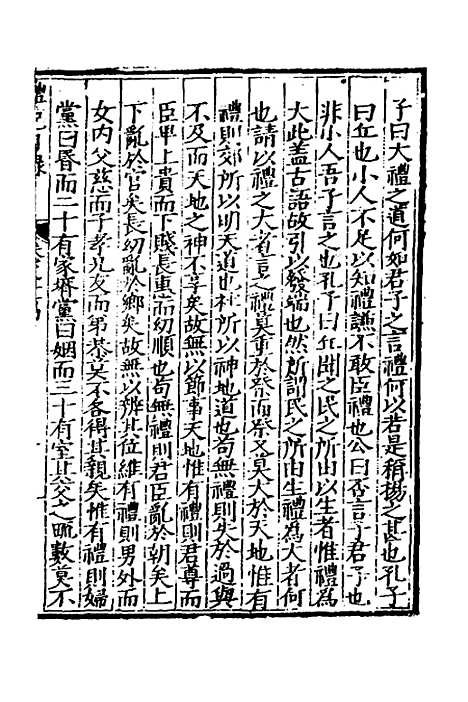 子曰大禮之道何如君子之言禮何以若是稱揚之甚也孔子
曰丘也小人不足以知禮謙不敢臣禮也公曰否言子君子也
非小人吾子言之也孔子曰丘聞之民之所由以生者惟禮為
大此盖古語故引以發端也然所謂民之所由生禮為大者何
也請以禮之大者言之禮莫重於祭而祭又莫大於天地惟有
禮則郊所以明天道也社所以神地道也苟無禮則失於過與
不及而天地之神不享矣故無以節事天地惟有禮則君尊而
臣卑上貴而下賤長惠而幼順也苟無禮則君臣亂於朝矣上
下亂於官矣長幼亂於鄉矣故無以辨其位維有禮則男外而
女内父慈而子孝兄友而弟恭莫不各得其親矣惟有禮則婦
黨曰昏而二十有家壻黨曰姻而三十有室其交之疏數莫不